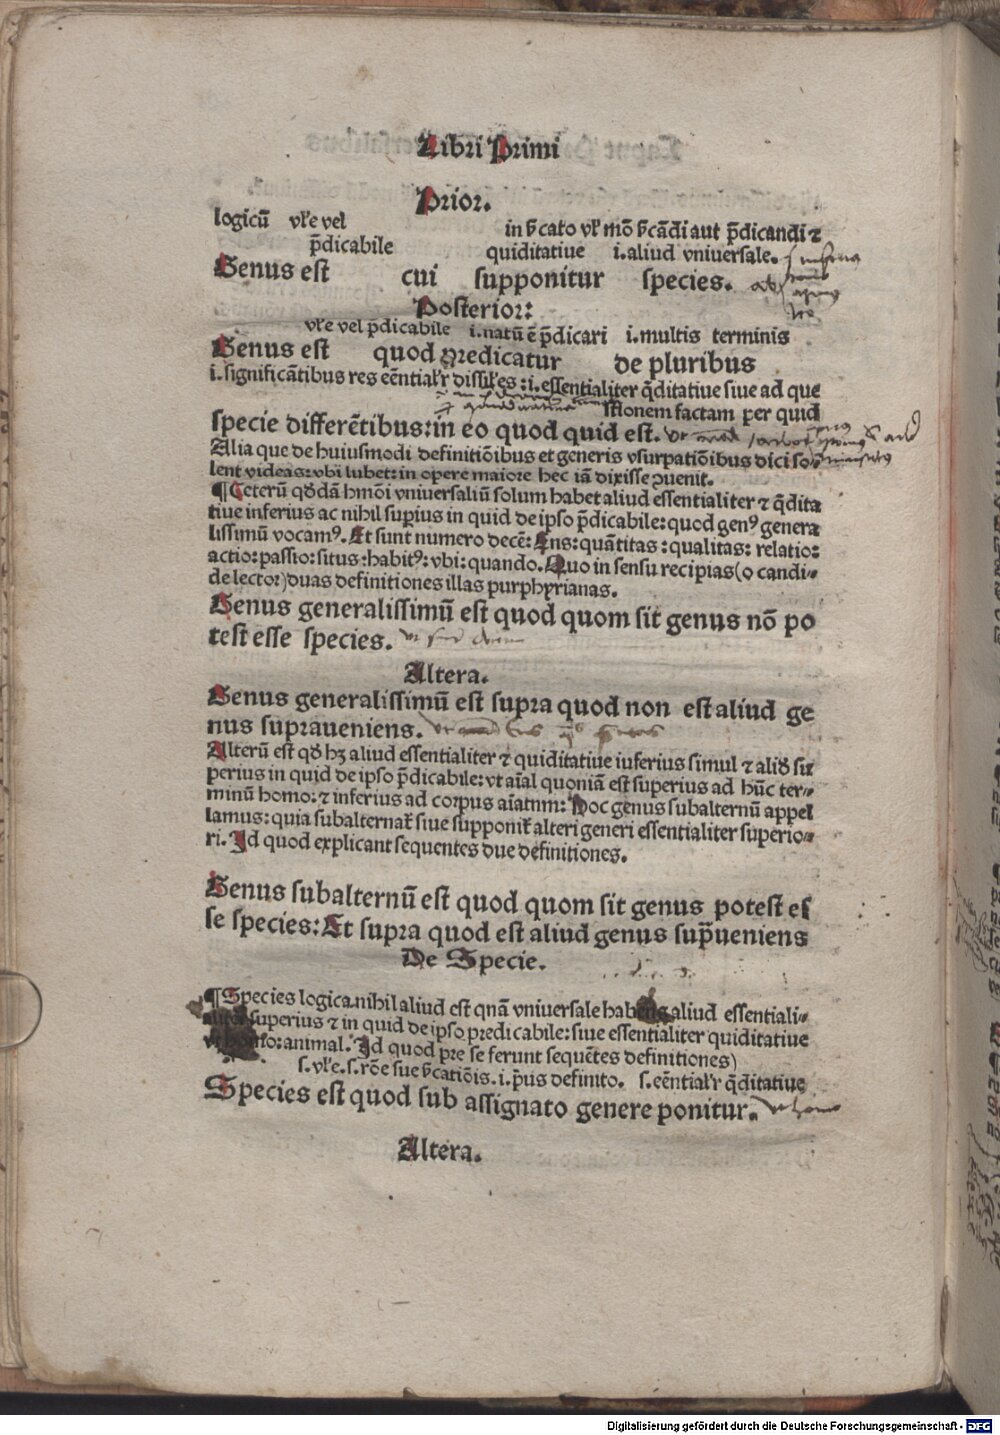 Libri Primi
Prior.
logicū vl'e vel in s̄cato vl' mō s̄cādi aut p̄dicandi ⁊
p̄dicabile quiditatiue i. aliud vniuersale.
Genus est cui supponitur species.
Posterior:
vl'e vel p̄dicabile i. natū ē p̄dicari i. multis terminis
Genus est quod predicatur de pluribus
i. significātibus res eēntial'r dissil'es : i. essentialiter q̄ditatiue siue ad que
stionem factam per quid
specie differētibus: in eo quod quid est.
Alia que de huiusmodi definitiōibus et generis vsurpatiōibus dici so⸗
lent videas: vbi lubet: in opere maiore hec iā dixisse ↄuenit.
¶ Ceterū qd̄dā hmōi vniuersaliū solum habet aliud essentialiter ⁊ q̄dita
tiue inferius ac nihil superius in quid de ipso p̄dicabile: quod genꝰ genera
lissimū vocamꝰ. Et sunt numero decē: Ens: quātitas: qualitas: relatio:
actio: passio: situs: habitꝰ: vbi: quando. Quo in sensu recipias (o candi⸗
de lector) duas definitiones illas purphyrianas.
Genus generalissimū est quod quom sit genus nō po
test esse species.
Altera.
Genus generalissimū est supra quod non est aliud ge
nus supraueniens.
Alterū est qd̄ hꝫ aliud essentialiter ⁊ quiditatiue inferius simul ⁊ alid̄ su
perius in quid de ipso p̄dicabile: vt aīal quoniā est superius ad hūc ter⸗
minū homo: ⁊ inferius ad corpus aīatum: Hoc genus subalternū appel
lamus: quia subalternat̄ siue supponit̄ alteri generi essentialiter superio⸗
ri. Id quod explicant sequentes due definitiones.
Genus subalternū est quod quom sit genus potest es
se species: Et supra quod est aliud genus sup̄ueniens
De Specie.
¶ Species logica nihil aliud est qnā vniuersale habens aliud essentiali⸗
superius ⁊ in quid de ipso predicabile: siue essentialiter quiditatiue
vt homo: animal. Id quod pre se ferunt sequētes definitiones)
s. vl'e. s. rōe sue s̄catiōis. i. p̄us definito. s. eēntial'r q̄ditatiue
Species est quod sub assignato genere ponitur. vt homo
Altera.
Digitalisierung gefördert durch die Deutsche Forschungsgemeinschaft - DFG